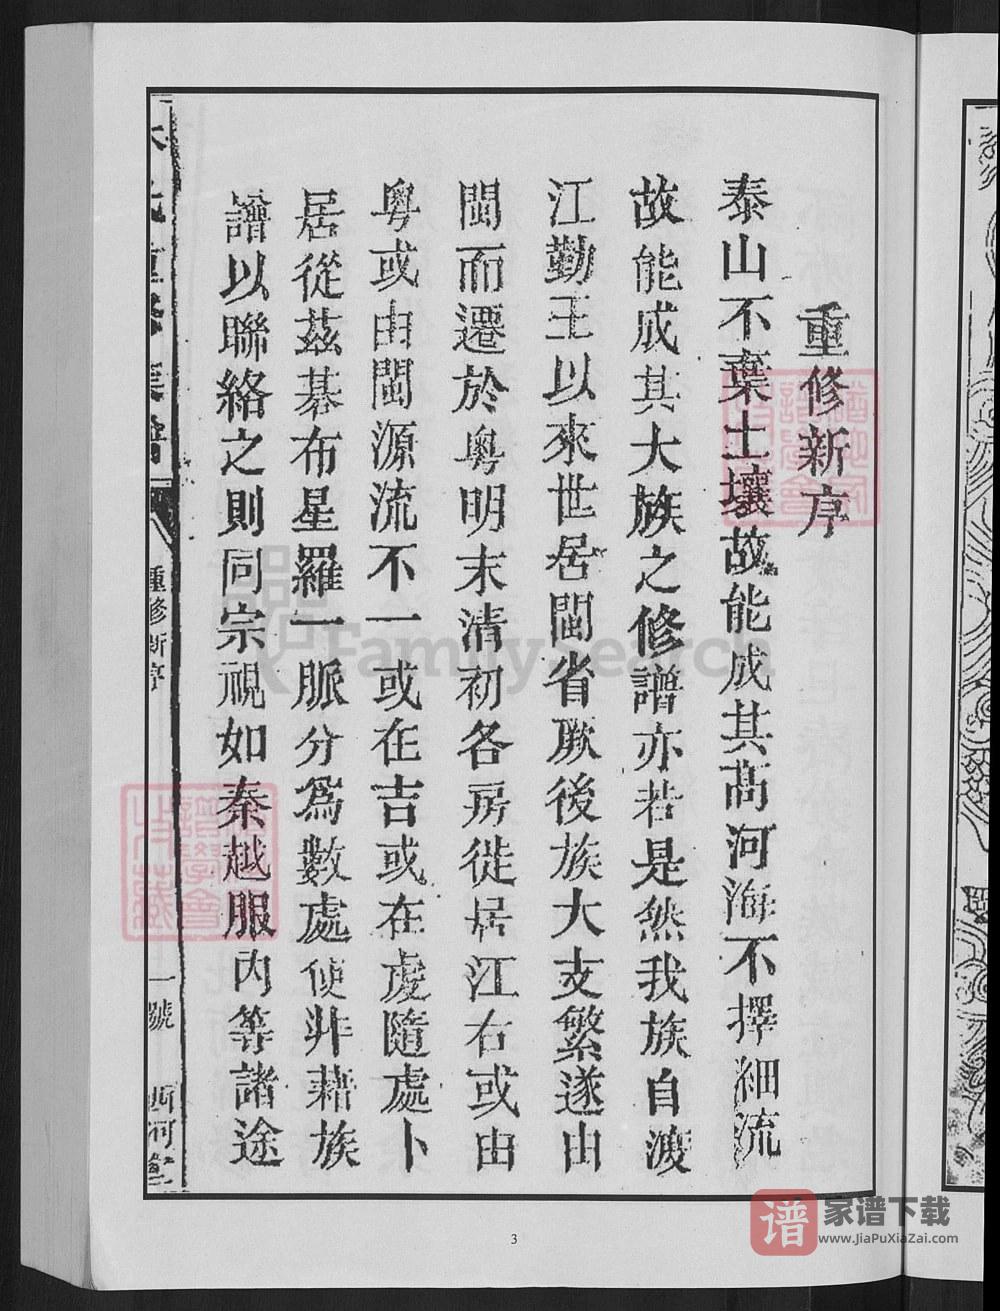 重修新序
泰山不棄土壤故能成其高河海不擇細流
故能成其大族之修譜亦若是然我族自渡
江勤王以來世居閩省厥後族大支繁遂由
閩而遷於粵明末清初各房徙居江右或由
粵或由閩源流不一或在吉或在虔隨處卜
居從茲碁布星羅一脈分爲數處使非藉族
譜以聯絡之則同宗視如秦越服內等諸途
重修新序
一號
西河堂
3
FamilySearch
谱
家谱下载
www.JiaPuXiaZai.com